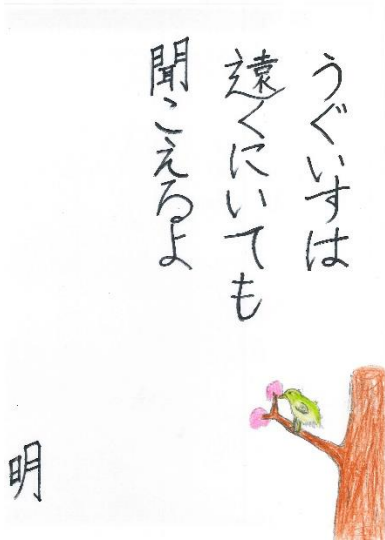 うぐいすは
遠くにいても
聞こえるよ
明